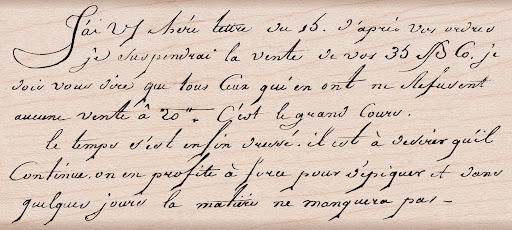 J'ai V/ chére lettre du 15. d'aprés vos ordres
je suspendrai la vente de vos 35 Co. je
dois vous dire que tous Ceux qu'en ont ne Refusent
aucune vente â 20". C'est le grand Cours.
le temps s'est enfin dressé. il est à desirer qu'il
Continue. on en profite à force pour dépiquer et dans
quelques jours la matiére ne manquera pas -